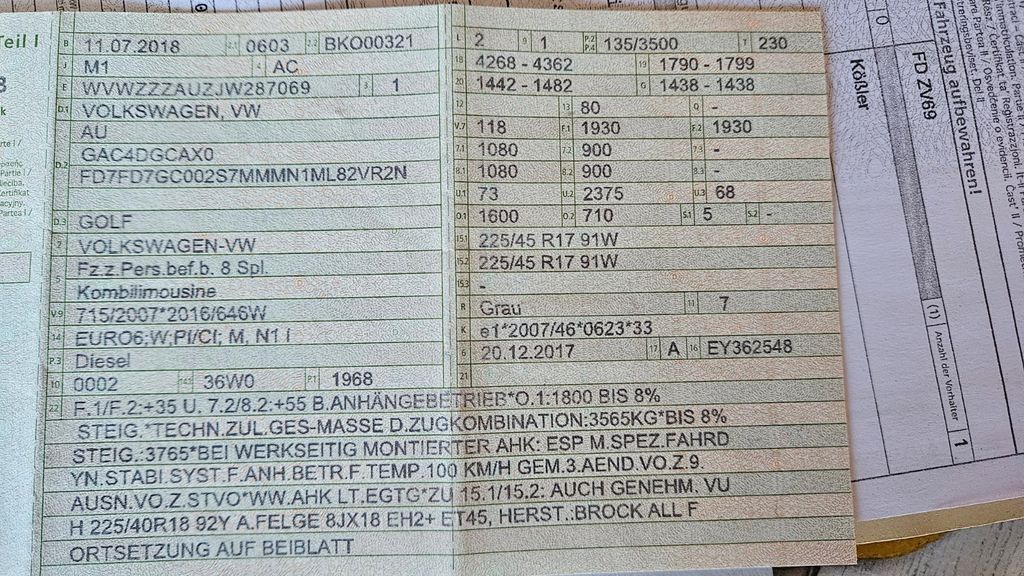 Teil I
B 11.07.2018 2.1 0603 2.2 BKO00321
J M1 4 AC
E WVWZZZAUZJW287069 3 1
D.1 VOLKSWAGEN, VW
AU
D.2 GAC4DGCAX0
FD7FD7GC002S7MMMN1ML82VR2N
D.3 GOLF
2 VOLKSWAGEN-VW
5 Fz.z.Pers.bef.b. 8 Spl.
Kombilimousine
V.9 715/2007*2016/646W
14 EURO6;W;PI/CI; M, N1 I
P.3 Diesel
10 0002 14.1 36W0 P.1 1968
L 2 9 1 P.2 P.4 135/3500 T 230
18 4268 - 4362 19 1790 - 1799
20 1442 - 1482 G 1438 - 1438
12 13 80 Q -
V.7 118 F.1 1930 F.2 1930
7.1 1080 7.2 900 7.3 -
8.1 1080 8.2 900 8.3 -
U.1 73 U.2 2375 U.3 68
O.1 1600 O.2 710 S.1 5 S.2 -
15.1 225/45 R17 91W
15.2 225/45 R17 91W
15.3 -
R Grau 11 7
K e1*2007/46*0623*33
6 20.12.2017 17 A 16 EY362548
21
22 F.1/F.2:+35 U. 7.2/8.2:+55 B.ANHÄNGEBETRIEB*O.1:1800 BIS 8%
STEIG.*TECHN.ZUL.GES-MASSE D.ZUGKOMBINATION:3565KG*BIS 8%
STEIG.:3765*BEI WERKSEITIG MONTIERTER AHK: ESP M.SPEZ.FAHRD
YN.STABI.SYST.F.ANH.BETR.F.TEMP.100 KM/H GEM.3.AEND.VO.Z.9.
AUSN.VO.Z.STVO*WW.AHK LT.EGTG*ZU 15.1/15.2: AUCH GENEHM. VU
H 225/40R18 92Y A.FELGE 8JX18 EH2+ ET45, HERST.:BROCK ALL F
ORTSETZUNG AUF BEIBLATT
Fahrzeug aufbewahren!
0
FD ZV69
(1) Anzahl der Vorhalter 1
Kößler